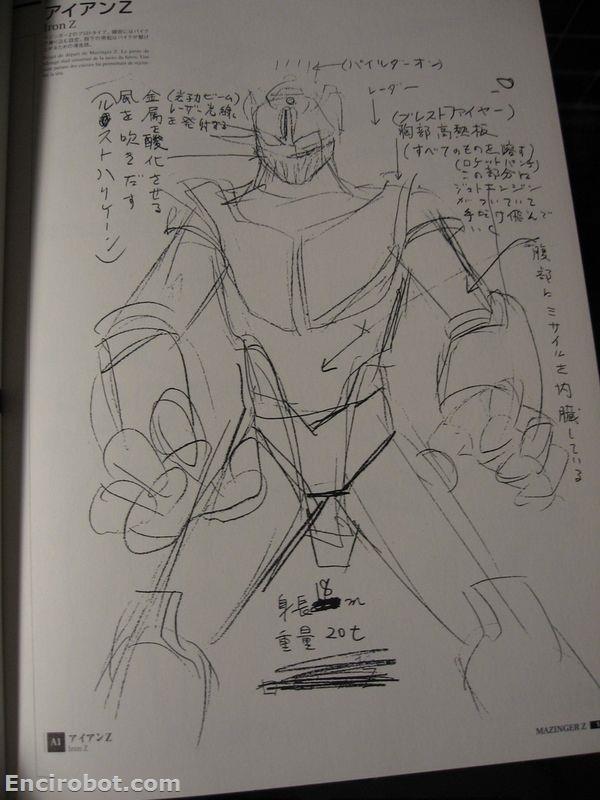 アイアンZ
Iron Z
(パイルダーオン)
レーダー
(光子力ビーム)
レーザー光線
を発射する
金属を酸化させる
風を吹きだす
(ルストハリケーン)
(ブレストファイヤー)
胸部高熱板
(すべてのものを溶す)
(ロケットパンチ)
この部分に
ジェットエンジン
がついていて
手だけ飛んで
いく
腹部にミサイルを内臓している
身長18m
重量20t
A1 アイアンZ
Iron Z
MAZINGER Z
Encirobot.com